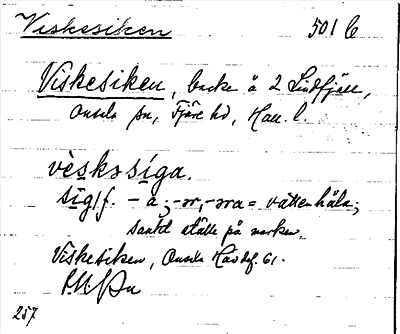 Viskesiken 501 b
Viskesiken, backe å 2 Lindfjäll,
Onsala sn, Fjäre hd, Hall. l.
vèskəsíga.
sig f. – a; -ər, -əra = vattenhåla;
sankt ställe på marken.
Viskesiken, Onsala Hds. 61.
257